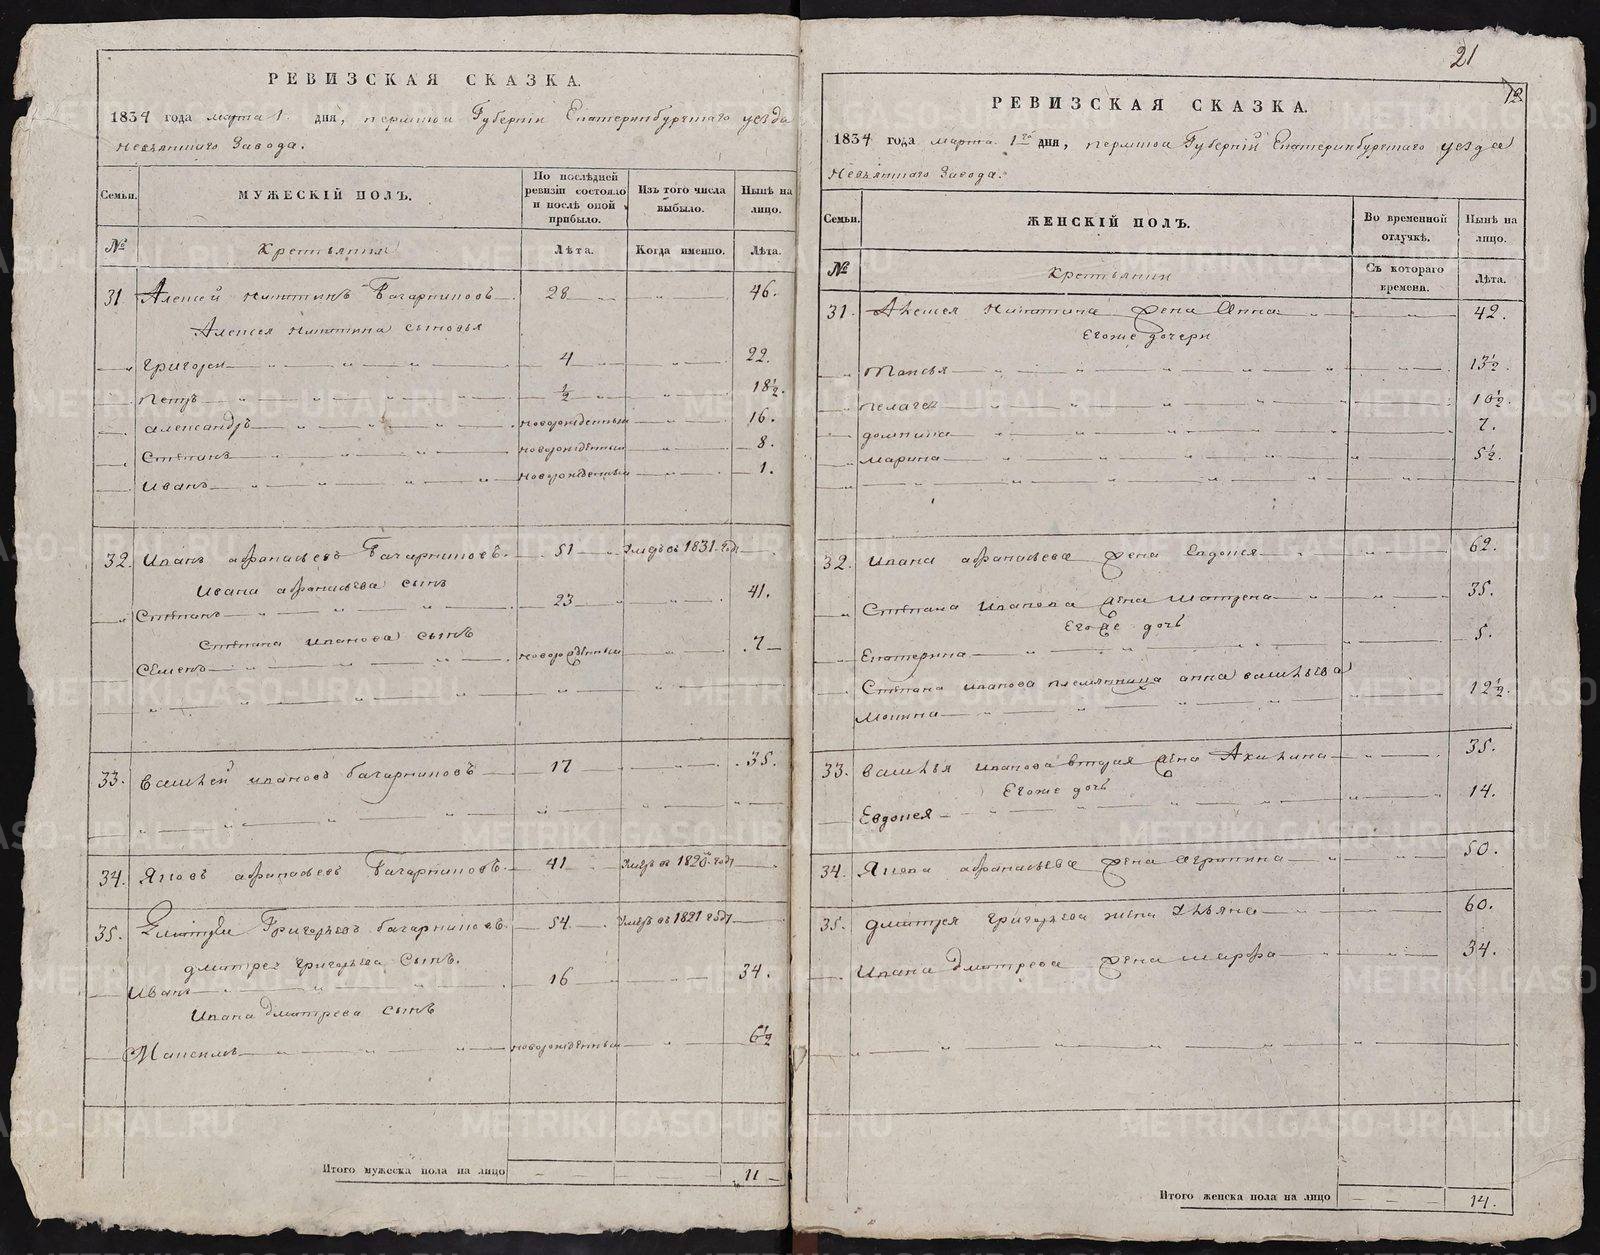 РЕВИЗСКАЯ СКАЗКА.
1834 года марта 1. дня, пермской Губерніи Екатеринбургскаго уезда
Невьянскаго Завода.
Семьи. МУЖЕСКІЙ ПОЛЪ. По послѣдней ревизіи состояло и послѣ оной прибыло. Изъ того числа выбыло. Нынѣ на лицо.
№ Крестьянин Лѣта. Когда именно. Лѣта.
31 Алексей никитинъ 28 46.
Алексея никитина сыновья
григореи 4 22.
петръ ½ 18½.
александръ новорожденныи 16.
Степанъ новорожденныи 8.
Иванъ новорожденныи 1.
32. Иванъ афонасьевъ 51 Умеръ въ 1831 году
Ивана афонасьева сынъ
Степанъ 23 41.
Степана иванова сынъ
Семенъ новорожденныи 7
33. василей ивановъ 17 35.
34. Яковъ афонасьевъ 41 Умеръ въ году
35. Дмитреи Григорьевъ 54. Умеръ въ 1821 году
дмитрея григорьева Сынъ.
Иванъ 16 34.
Ивана дмитрева сынъ
Максимъ новорожденныи 6½
Итого мужеска пола на лицо 11
21
12
РЕВИЗСКАЯ СКАЗКА.
1834 года марта 1го дня, пермской Губерніи Екатеринбургскаго уезда
Невьянскаго Завода.
Семьи. ЖЕНСКІЙ ПОЛЪ. Во временной отлучкѣ. Нынѣ на лицо.
№ Крестьянки Съ котораго времени. Лѣта.
31. Алексея Никитина жена Анна 42.
Егоже дочери
Таисья 13½.
пелагея 10½.
домнина 7.
марина 5½.
32. ивана афонасьева жена Евдокея 62.
Степана иванова жена матрена 35.
Егоже дочь
Екатерина 5.
Степана иванова племянница анна васильева 12½.
33. василья иванова вторая жена Акилина 35.
Егоже дочь
Евдокея 14.
34. Якова афонасьева жена 50.
35. дмитрея григорьева жена Ульяна 60.
Ивана дмитрева жена марфа 34.
Итого женска пола на лицо 14.
METRIKI.GASO-URAL.RU